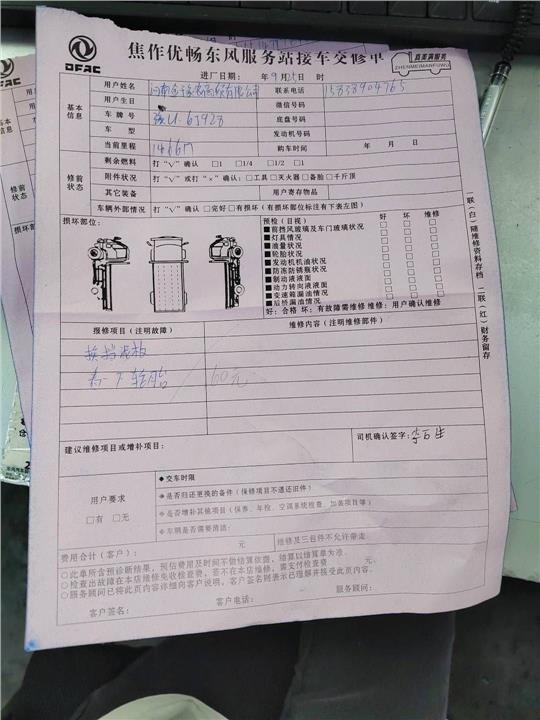 DFAC
焦作优畅东风服务站接车交修单
真美满服务
ZHENMEIMANFUWU
进厂日期: 年 9 月 日 时
基本信息
用户姓名 河南 有限公司 联系电话 15838904765
用户生日 微信号码
车牌号 底盘号码
车 型 发动机号码
当前里程 购车时间 年 月 日
修前状态
剩余燃料 打"√"确认 □1 □1/4 □1/2 □1
附件状况 打"√"或打"×"确认: □工具 □灭火器 □备胎 □千斤顶
其它装备 用户寄存物品
车辆外部情况 打"√"确认 □完好 □有损坏(有损坏部位标注有下表左图)
损坏部位:
预检(目视) 好 坏 维修
■前挡风玻璃及车门玻璃状况 □ □ □
■灯具情况 □ □ □
■油量状况 □ □ □
■轮胎状况 □ □ □
■发动机机油状况 □ □ □
■防冻防锈瓶状况 □ □ □
■制动液液面 □ □ □
■动力转向液液面 □ □ □
■变速箱漏油情况 □ □ □
■后桥漏油情况 □ □ □
好:合格 坏:有故障需维修 维修:用户确认维修
一联(白)随维修资料存档 二联(红)财务留存
报修项目(注明故障) 维修内容(注明维修部件)
换挡泥板
一个轮胎 60元
建议维修项目或增补项目:
司机确认签字:
用户要求
□有 □无
◆交车时限
◆是否归还更换的备件(保修项目不退还旧件)
◆是否增补其他项目(保养、年检、空调系统检查、加装项目等)
◆车辆是否需要清洁:
费用合计(客户): 元 维修及三包件不允许带走
○此单所含预诊断结果,预估费用及时间不做结算依据,结算以结算单为准。
○检查出故障在本店维修免收检查费,若不在本店维修,需支付检查费 元。
○服务顾问已将此页内容详细向客户说明,客户签名则表示已理解并接受此页内容。
客户签名: 客户电话: 服务顾问: